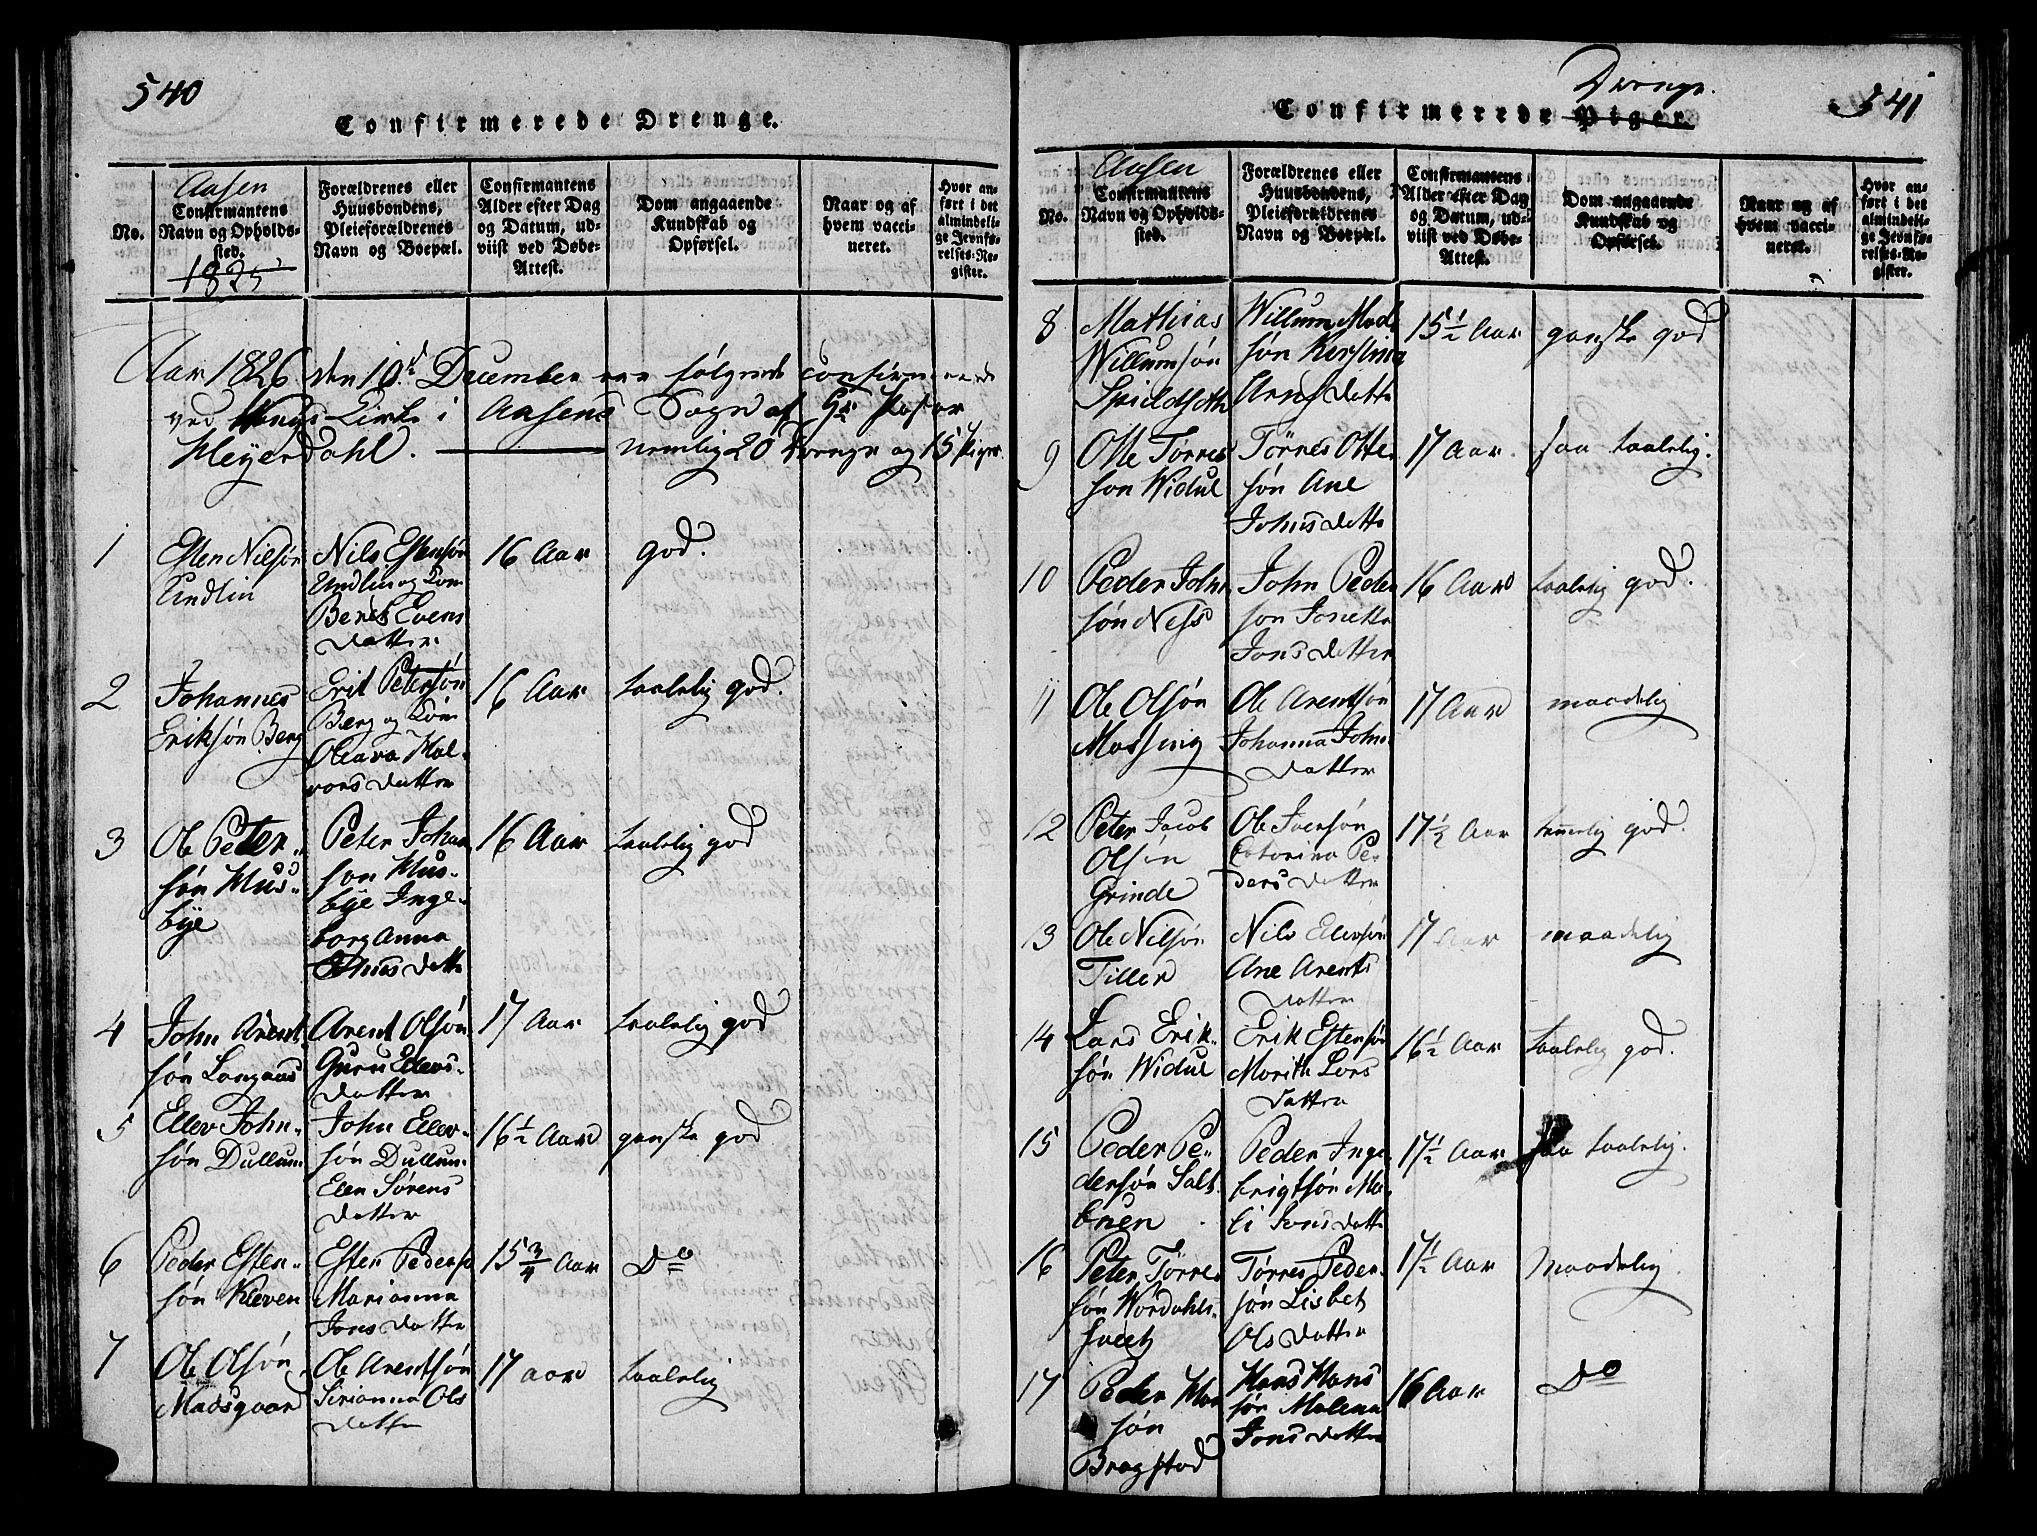 540
Confirmerede Drenge.
No.
Aasen
Confirmantens
Navn og Opholds-
sted.
1825
Forældrenes eller
Huusbondens,
Pleieforældrenes
Navn og Boepæl.
Confirmantens
Alder efter Dag
og Datum, ud-
viist ved Døbe-
Attest.
Dom angaaende
Kundskab og
Opførsel.
Naar og af
hvem vacci-
neret.
Hvor an-
ført i det
almindeli-
ge Jevnfø-
relses-Re-
gister.
Aar 1826 den 10d December ere følgende confirmerede
ved Kirke i Aasens Sogn af Pastor
Heyerdahl. nemlig 20 Drenge og 15 Piger
1
Esten Nilsøn
Lindlin
Nils Estensøn
Undlin og Kone
Berit Evens
datter
16 Aar
god.
2
Johannes
Eriksøn Berg
Erik Petersøn
Berg og Kone
Oleava Hal-
vors datter
16 Aar
taalelig god.
3
Ole Peter-
søn Hus-
bye
Peter Johan
søn Hus-
bye Inge-
borg Anna
Johns datter
16 Aar
taalelig god
4
John Arent
søn Langaas
Arent Olsøn
Guru Ellevs-
datter
17 Aar
taalelig god
5
Ellev John-
søn Dullum
John Ellev-
søn Dullum
Elen Sørens
datter
16½ Aar
ganske god
6
Peder Esten-
søn Kleven
Esten Pedersø
Marianna
Jons datter
15¾ Aar
Do
7
Ole Olsøn
Madsgaard
Ole Arentsøn
Sirianna Ols
datter
17 aar
taalelig
541
Drenge.
Confirmerede Piger.
No.
Aasen
Confirmantens
Navn og Opholds-
sted.
Forældrenes eller
Huusbondens,
Pleieforældrenes
Navn og Boepæl.
Confirmantens
Alder efter Dag
og Datum, ud-
viist ved Døbe-
Attest.
Dom angaaende
Kundskab og
Opførsel.
Naar og af
hvem vacci-
neret.
Hvor an-
ført i det
almindeli-
ge Jevnfø-
relses-Re-
gister.
8
Mathias
Willumsøn
Skieldseth
Willum Mad
søn Kirstina
Arns datter
15½ Aar
ganske god
9
Otte Tørres
søn Widul
Tørres Otte
søn Ane
Johns datter
17 Aar
saa taalelig.
10
Peder John
søn Ness
John Peder
søn Jonetta
Jons datter
16 Aar
taalelig god.
11
Ole Olsøn
Mossing
Ole Arentsøn
Johanna Johns
datter
17 Aar
maadelig
12
Peter Jacob
Olsøn
Grinde
Ole Iversøn
Catarina Pe-
ders datter
17½ Aar
temmelig god.
13
Ole Nilsøn
Tiller
Nils Ellevsøn
Ane Arents
datter
17 Aar
maadelig
14
Lars Erik-
søn Widul
Erik Estensøn
Morith Lars
datter
16½ Aar
taalelig god.
15
Peder Pe-
dersøn Salt-
buen
Peder Inge
brigtsøn Ma-
li Jons datter
17½ Aar
saa taalelig.
16
Peter Tørres
søn Wordahls-
sveet
Tørres Peder-
søn Lisbet
Ols datter
17½ Aar
Maadelig
17
Peder Han
søn
Bragstad
Hans Hans
søn Malena
Jons datter
16 Aar
Do